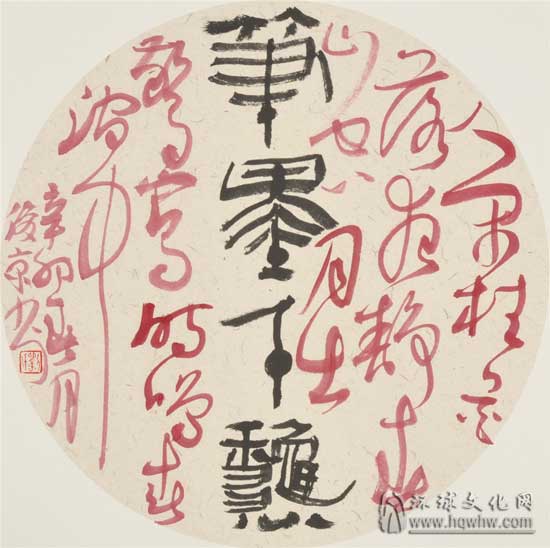 人閒桂花
落夜静春
山空
月出
筆墨千龝
驚山鳥時鳴春
澗中
辛卯春月
俊京书
环球文化网
www.hqwhw.com